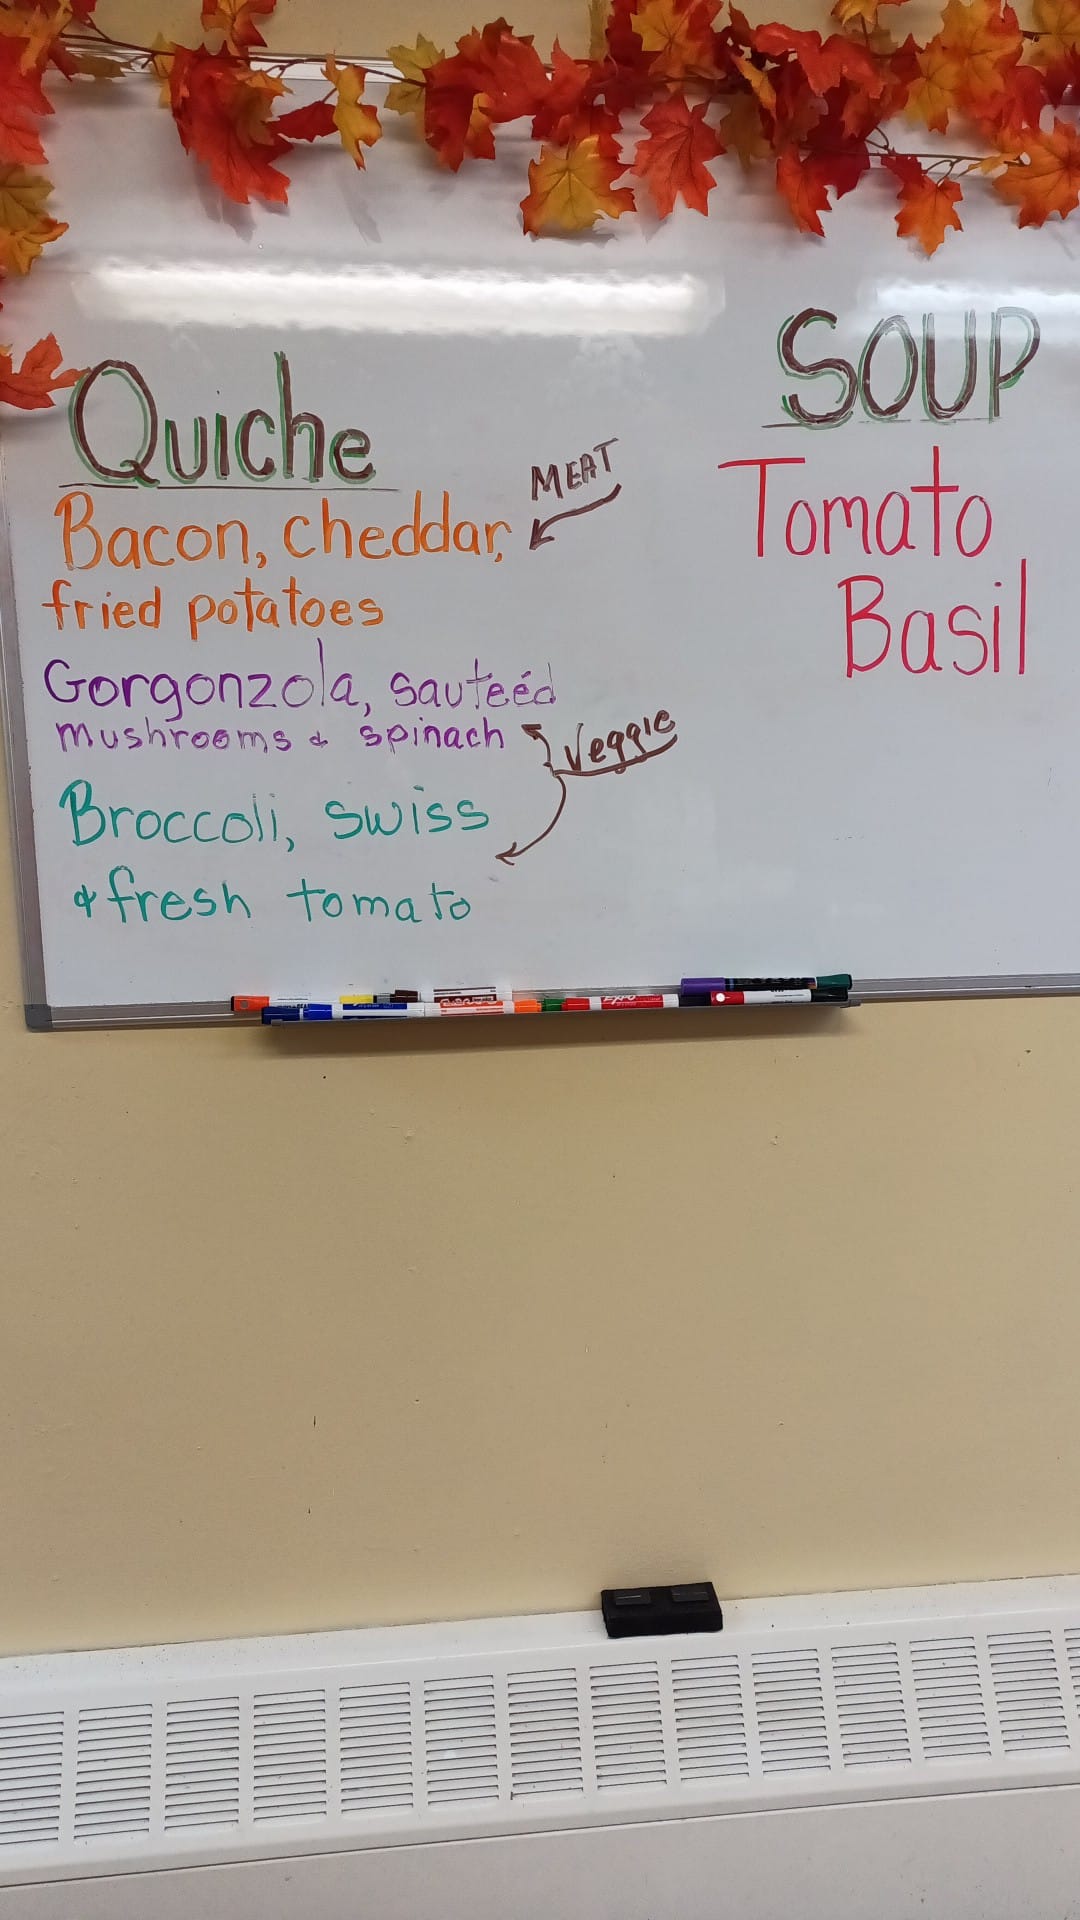 Quiche
MEAT
Bacon, cheddar,
fried potatoes
Gorgonzola, sauteéd
mushrooms & spinach
Veggie
Broccoli, swiss
& fresh tomato
SOUP
Tomato
Basil
EXPO